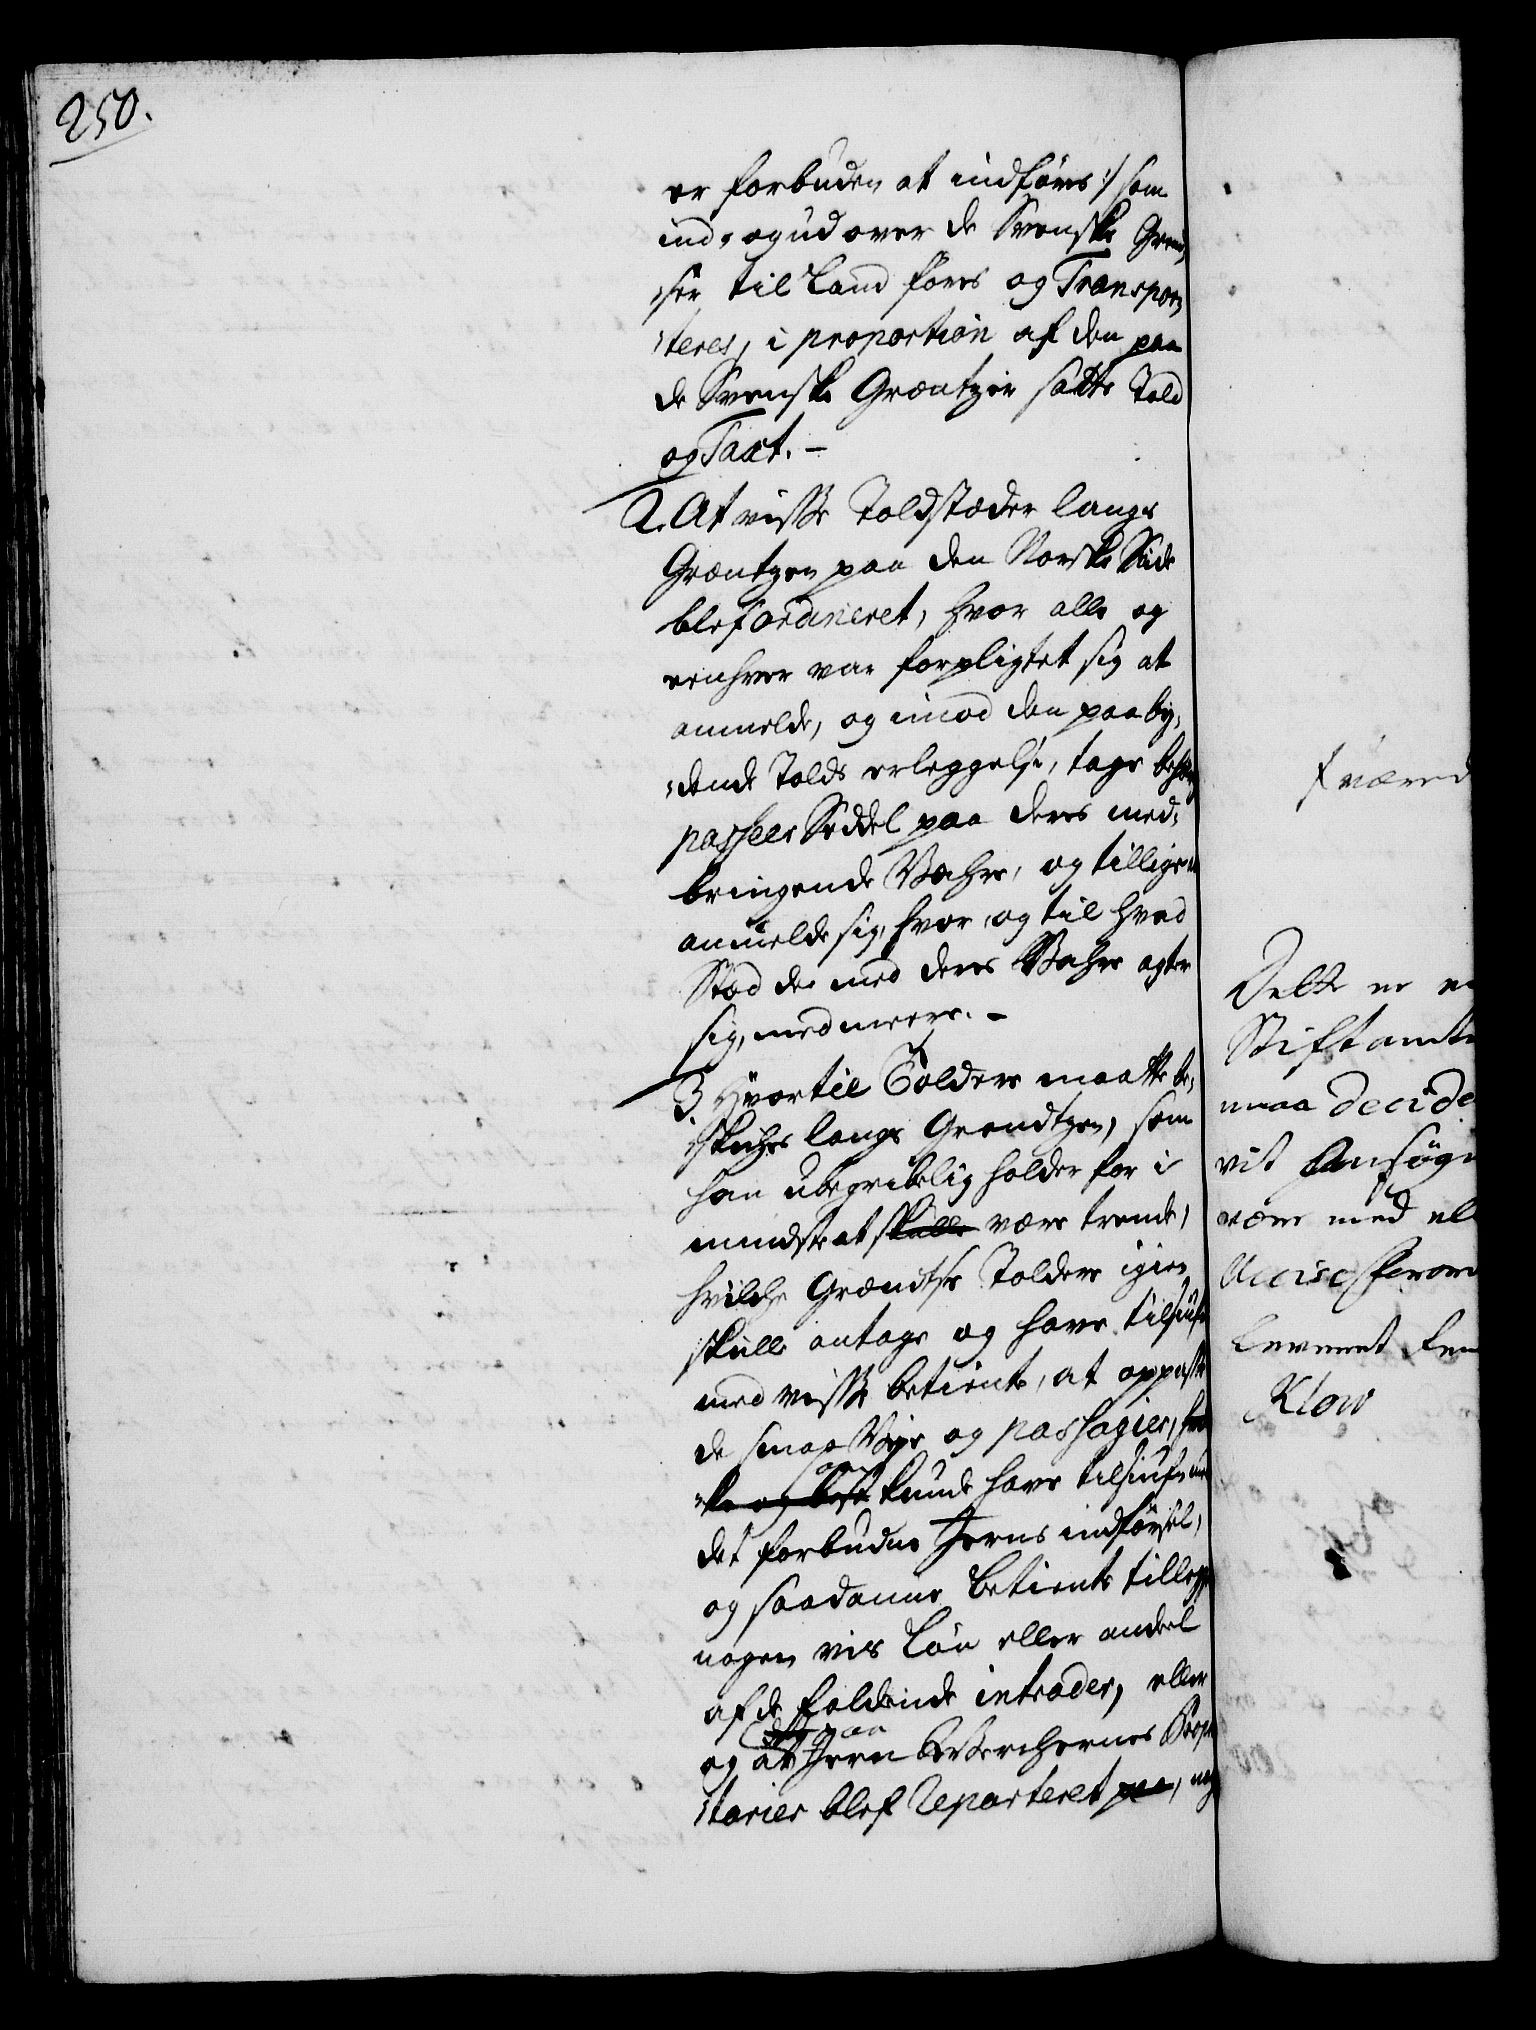 250.
er forbuden at indføres :/ som
ind- og ud over de Svenske Græn-
ser til Land føres og Transpor-
teres, i proportion af den paa
de Svenske Græntzer satte Told
og Taxt. -
2. At visse Toldstæder langs
Græntzen paa den Norske Side
blef ordineret, hvor alle og
eenhver var forpligtet sig at
anmelde, og imod den paaby-
dende Tolds erleggelse, tage
passeer Seddel paa deres med-
bringende Vahre, og tillige
anmelde sig, hvor og til hvad
Stæd de med deres Vahre agter
sig, med meere. -
3. Hvortil Toldere maatte be-
skiches langs Grændtzen, som
han ubegribelig holder for i
mindste at skulle være trende,
hvilche Grændtse Toldere igien
skulle antage og have tilsiufn
med visse betiente, at oppasse
de smaa Veje og passagier,
kunde have tilsiufn med
det forbudne Jerns indførsel,
og saadanne betiente tillegge
nogen vis Løn eller andeel
af de faldende intrader, eller
og at paa Jern Werchernes Propri-
tarier blef Reparteret paa,
f været
Dette er
Stiftamt
maa decide
vit Ansøgn
være med
Accise
Leveret
Klow